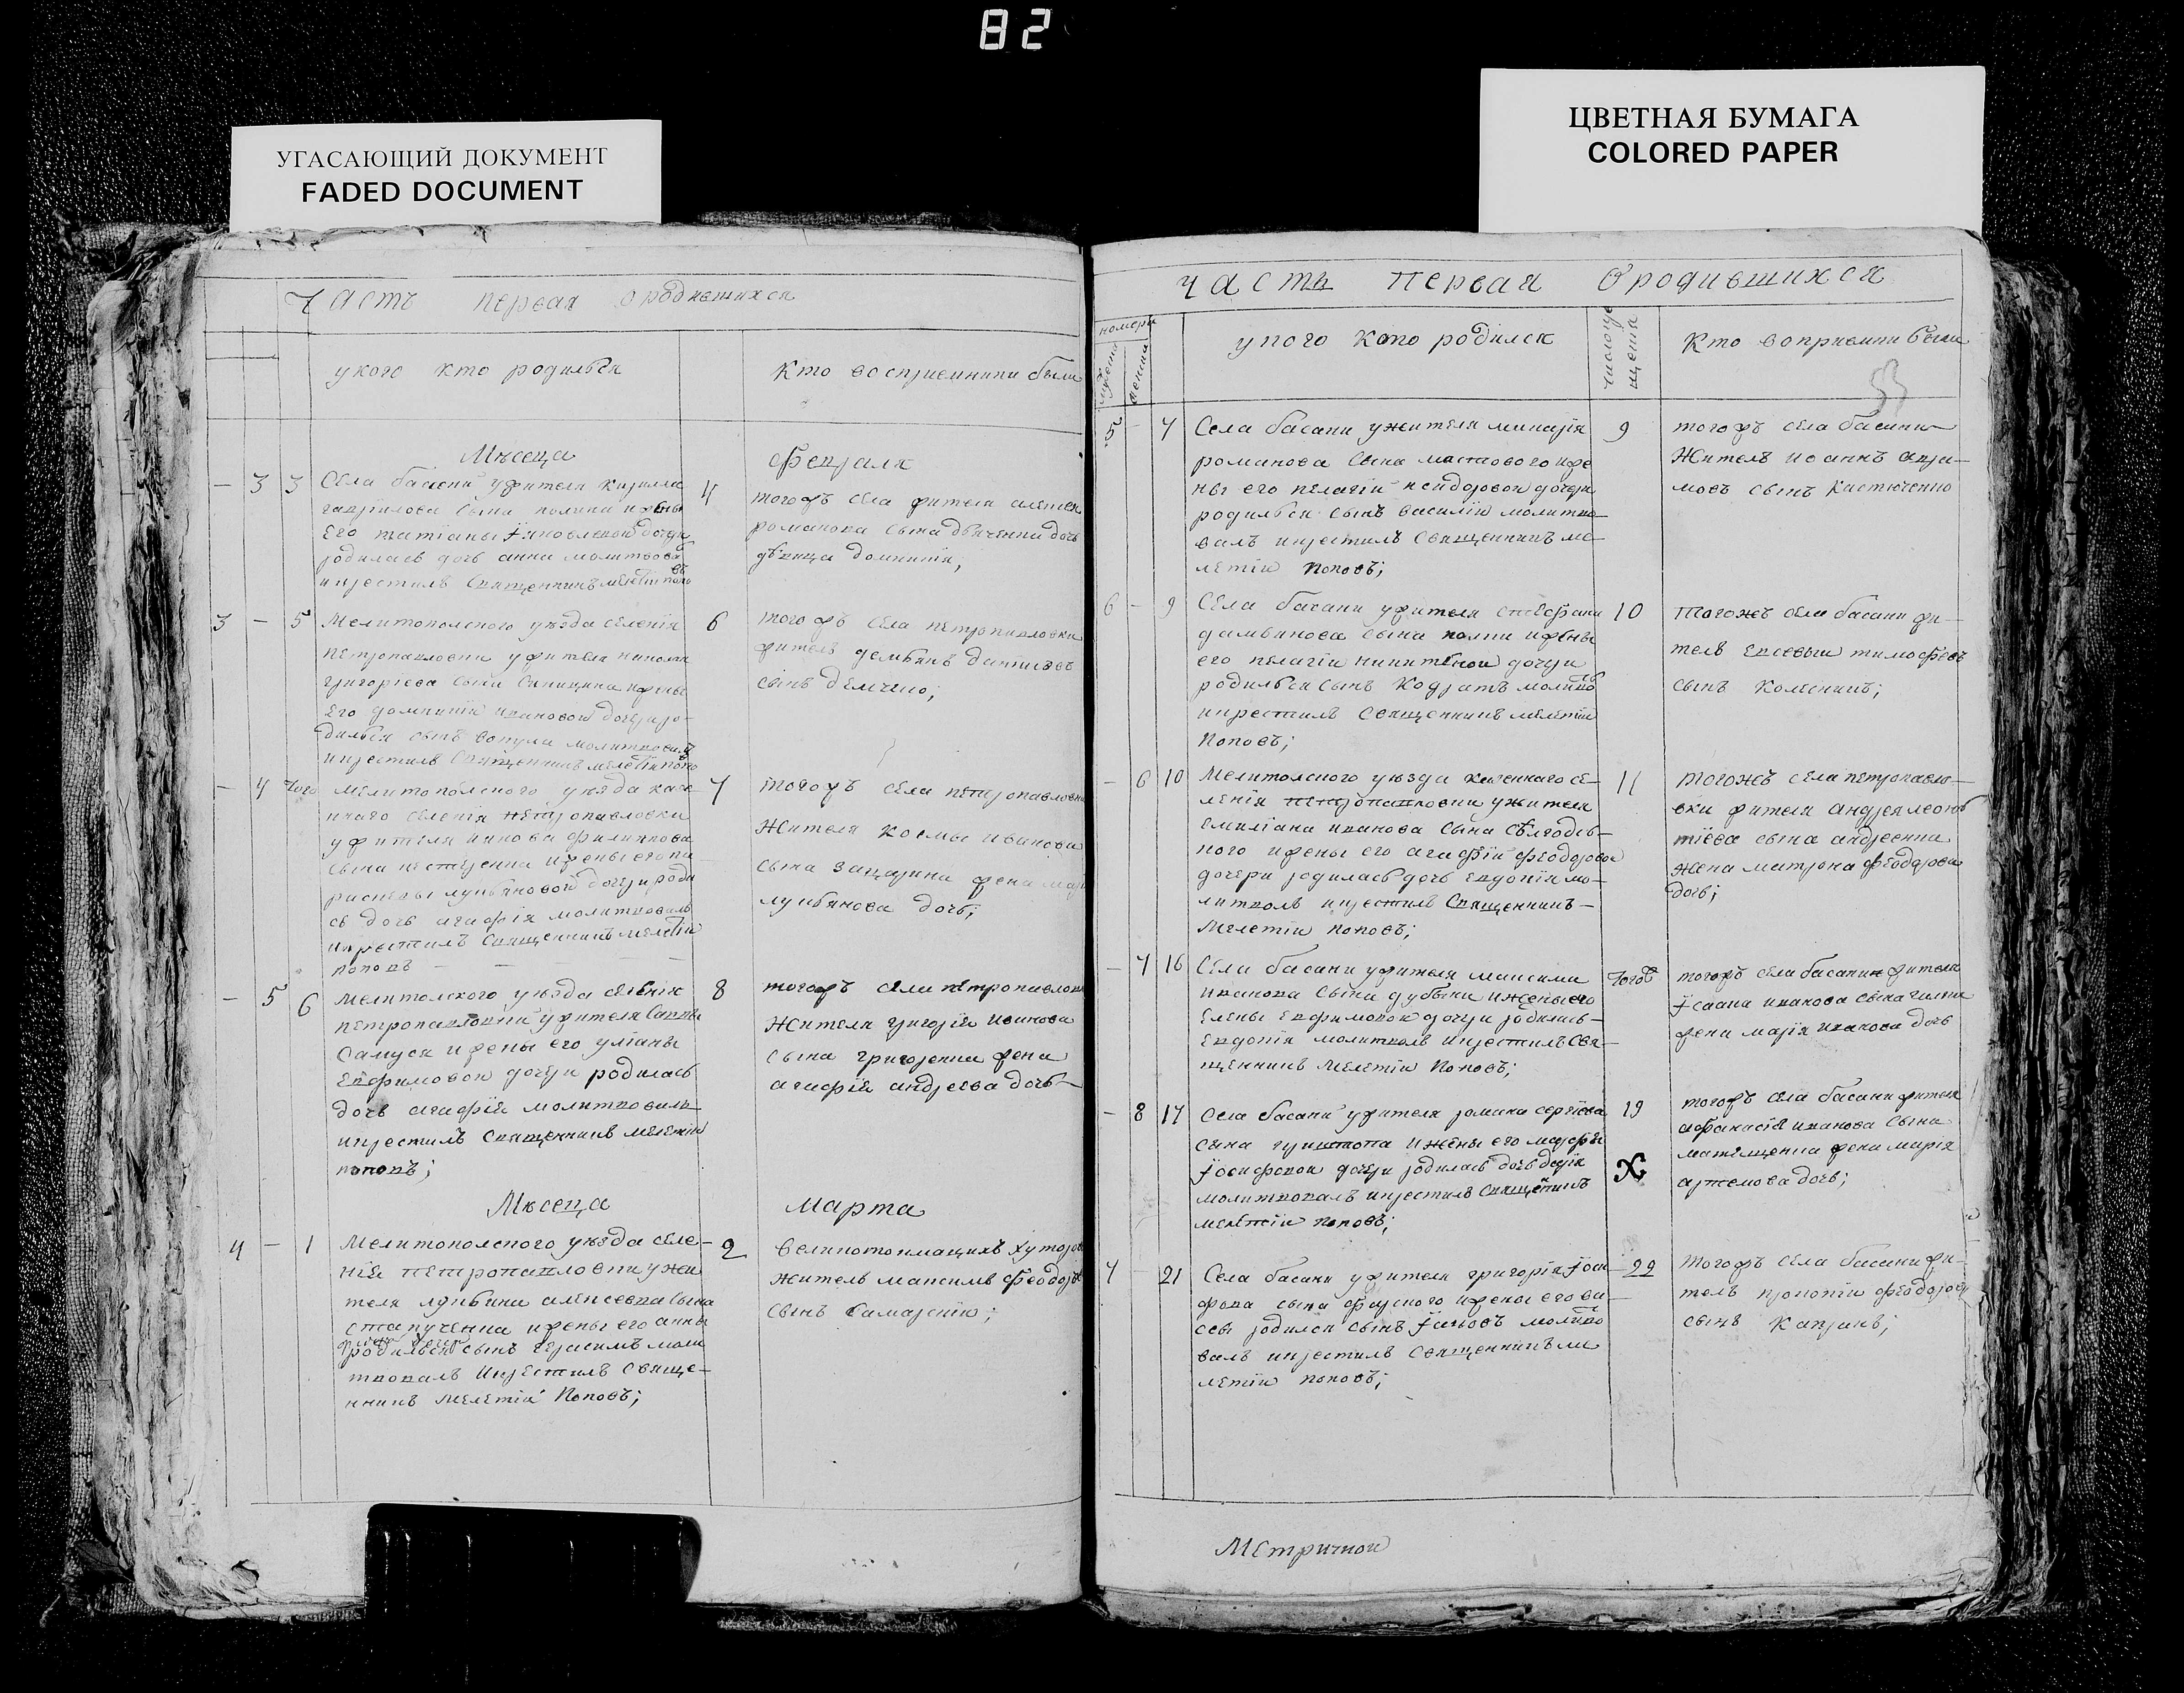 82
УГАСАЮЩИЙ ДОКУМЕНТ
FADED DOCUMENT
ЦВЕТНАЯ БУМАГА
COLORED PAPER
Часть первая о родившихся
у кого кто родился
Кто восприемники были
Мѣсеца
февраля
3 3 Села басани жителя кирилла
гаврилова сына
его татианы дочери
родилась дочь анна молитвова
икрестилъ Священникъ мелетiи попо
4 того села жителя алексея
романова сына дочь
девица домникия;
3 5 Мелитополского уезда селения
петропавловки у жителя николая
григориева сына жены
его домникiи ивановой дочери ро-
дился сынъ вакула молитвовалъ
икрестилъ Священникъ мелетiи попо
6 того села петропавловки
житель демьянъ
сынъ демченко;
4 того мелитополского уезда казе
ннаго селенiя петропавловки
у жителя иакова филиппова
сына нестеренка жены его па
раскевы лукьяновой дочери роди
сь дочь агафiя молитвовалъ
икрестилъ Священникъ мелетiи
поповъ
7 того села петропавловки
Жителя космы иванова
сына жена
лукьянова дочь;
5 6 мелитополского уезда селения
петропавловки у жителя саввы
Самуся и жены его улiаны
Евфимовои дочери родилась
дочь агафiя молитвовалъ
икрестилъ Священникъ мелетiи
поповъ;
8 того села петропавловки
Жителя григорiя иванова
сына григоренка жена
агафiя андреева дочь
Мѣсеца
марта
4 1 Мелитополского уезда селе-
нiя петропавловки у жи
теля лукьяна алексеева сына
жены его анны
родился сынъ герасимъ моли
твовалъ икрестилъ Свяще-
нникъ мелетiи Поповъ;
2 хуторовъ
житель максимъ феодоровъ
сынъ Самарскiи;
Часть Первая О родившихся
номера
у кого кто родился
число кре
щения
Кто восприемники были
53
5 7 Села басани у жителя
романова сына же
ны его пелагiи исидоровои дочери
родился сынъ василiи молитво
валъ икрестилъ Священникъ ме-
летiи поповъ;
9 того села басани
Житель иоаннъ
мовъ сынъ Костюченко
6 9 Села басани у жителя стефана
дамьянова сына и жены
его пелагiи никитеной дочери
родился сынъ Кодратъ молитво
икрестилъ Священникъ мелетiи
Поповъ;
10 тогожъ села басани жи-
тель Евсевiи тимофеевъ
сынъ Колесникъ;
6 10 Мелитополского уезда казеннаго се-
ленiя петропавловки у жителя
Емилiана иванова сына
ного и жены его агафiи феодорово
дочери родилась дочь Евдокiя мо-
литвовалъ икрестилъ Священникъ
Мелетiи поповъ;
11 тогожъ села петропавло-
вки жителя андрея леон
тiева сына андреенка
жена матрона феодорова
дочь;
7 16 Села басани у жителя максима
иванова сына дубыны и жены его
Елены Евфимовои дочери родилась
Евдокiя молитвовалъ икрестилъ Свя-
щенникъ Мелетiи Поповъ;
того села басани жителя
иванова сына
жена марiя иванова дочь
8 17 Села басани у жителя романа сергiева
сына и жены его марфы
Iосифовои дочери родилась дочь дарiя
молитвовалъ икрестилъ Священникъ
мелетiи поповъ;
19 того села басани жителя
афанасiя иванова сына
матющенка жена марiя
артемова дочь;
7 21 Села басани у жителя григорiя Iоси
фова сына и жены его ва
ссы родился сынъ Iаковъ молитво
валъ икрестилъ Священникъ ме
летiи поповъ;
22 того села басани жи-
тель прокопiи феодоровъ
сынъ Капранъ;
Метричной